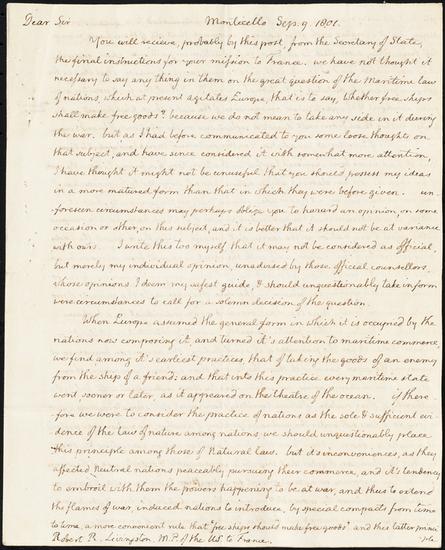 Dear Sir Monticello Sep. 9. 1801.
You will recieve, probably by this post, from the Secretary of State,
the final instructions for your mission to France. we have not thought it
necessary to say any thing in them on the great question of the Maritime law
of nations, which at present agitates Europe, that is to say, whether free ships
shall make free goods? because we do not mean to take any side in it during
the war. but as I had before communicated to you some loose thoughts on
that subject, and have since considered it with somewhat more attention,
I have thought it might not be unuseful that you should possess my ideas
in a more matured form than that in which they were before given. un-
foreseen circumstances may perhaps oblige you to hazard an opinion, on some
occasion or other, on this subject, and it is better that it should not be at variance
with ours. I write this too myself that it may not be considered as official
but merely my individual opinion, unadvised by those official counsellors,
whose opinions I deem my safest guide, & should unquestionably take in form
were circumstances to call for a solemn decision of the question.
When Europe assumed the general form in which it is occupied by the
nations now composing it, and turned it's attention to maritime commerce,
we find among it's earliest practices, that of taking the goods of an enemy
from the ship of a friend: and that into this practice every maritime state
went sooner or later, as it appeared on the theatre of the ocean. if there-
fore we were to consider the practice of nations as the sole & sufficient evi
dence of the law of nature among nations we should unquestionably place
this principle among those of Natural law. but it's inconveniences, as they
affected Neutral nations peaceably pursuing their commerce, and it's tendency
to embroil with them the powers happening to be at war, and thus to extend
the flames of war, induced nations to introduce, by special compacts from time
to time, a more convenient rule that 'free ships should make free goods' and this latter princi
Robert R. Livingston. M.P. of the U.S. to France. -ple